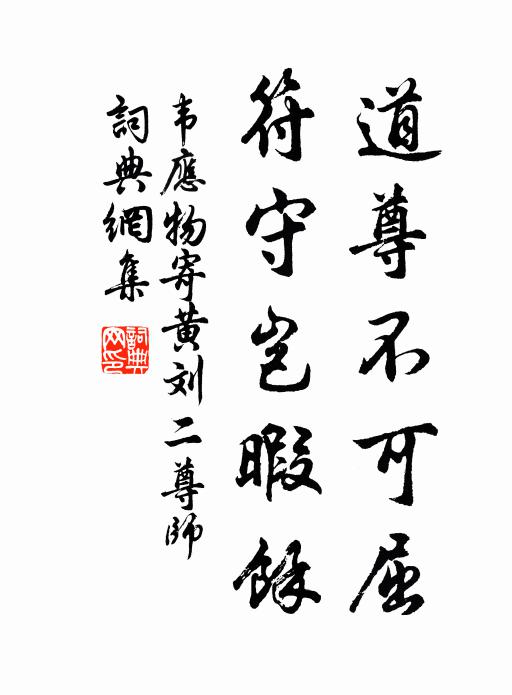 道尊不可屈
符守岂暇餘
韦應物寄黄刘二尊師
詞典網集
詞典网印